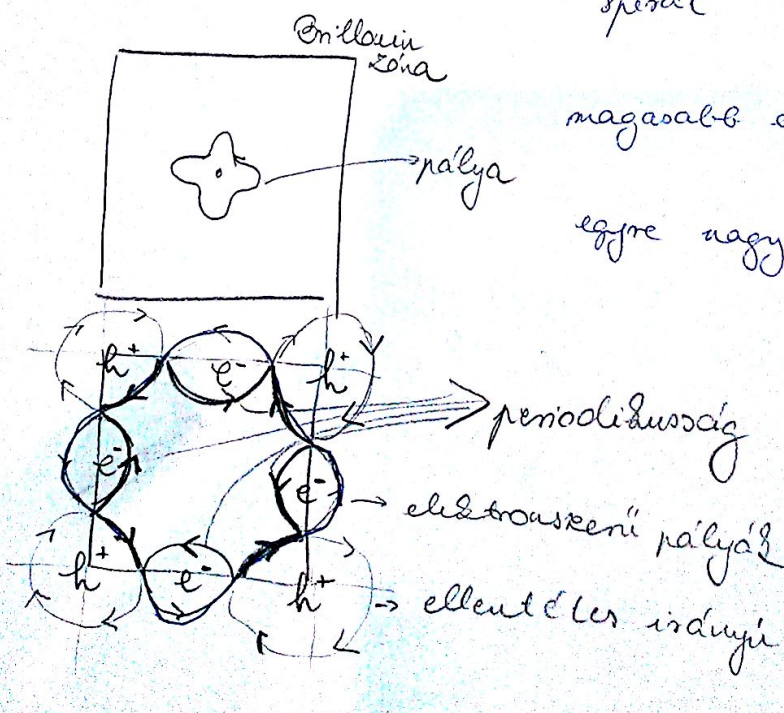 Brillouin
zóna
magasabb
pálya
egyre nagy
h⁺
e⁻
h⁺
periodikusság
e⁻
e⁻
elektronszerű pályák
h⁺
e⁻
h⁺
ellentétes irányú